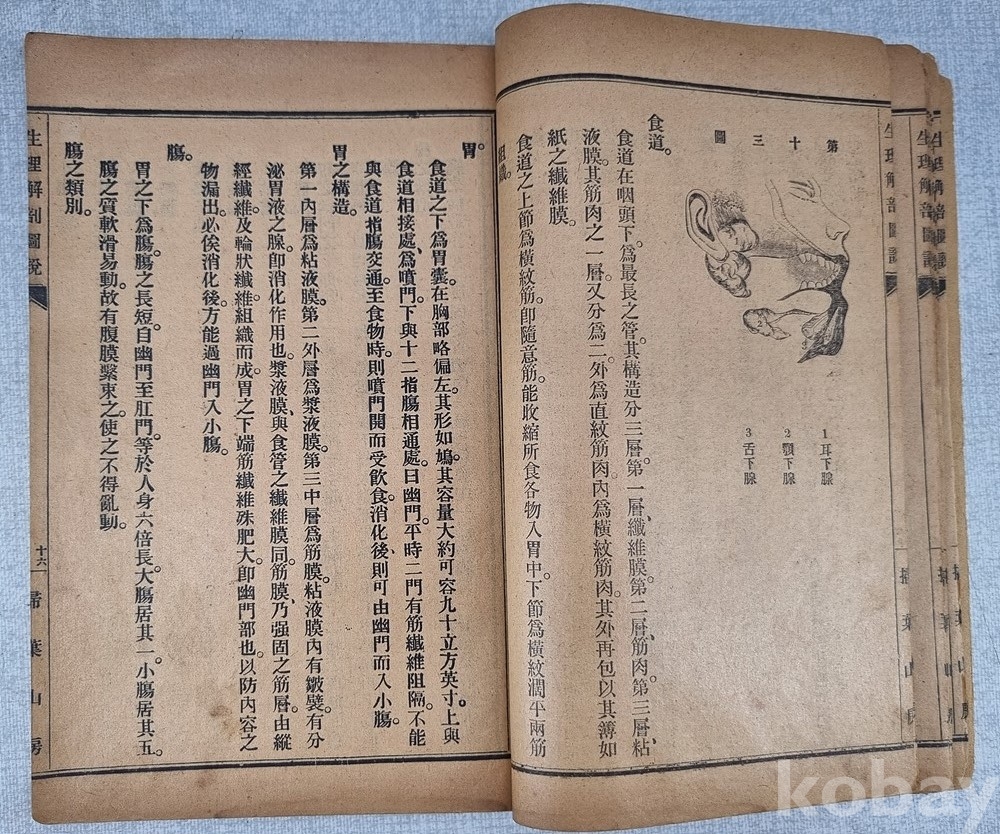 第十三圖
1耳下腺
2顎下腺
3舌下腺
食道。
食道在咽頭下。爲最長之管。其構造分三層。第一層、纖維膜。第二層、筋肉。第三層、粘
液膜。其筋肉之一層。又分爲二。外爲直紋筋肉。內爲橫紋筋肉。其外再包以其薄如
紙之纖維膜。
組織。
食道之上節爲橫紋筋。即隨意筋。能收縮所食各物入胃中。下節爲橫紋濶平兩筋
胃。
食道之下爲胃囊。在胸部略偏左。其形如鳩。其容量大約可容九十立方英寸。上與
食道相接處、爲噴門。下與十二指腸相通處。曰幽門。平時二門有筋纖維阻隔。不能
與食道指腸交通。至食物時。則噴門開而受飲食。消化後、則可由幽門而入小腸。
胃之構造。
第一內層爲粘液膜。第二外層爲漿液膜。第三中層爲筋膜。粘液膜內有皺襞。有分
泌胃液之腺。即消化作用也。漿液膜、與食管之纖維膜同。筋膜、乃强固之筋層。由縱
經纖維。及輪狀纖維。組織而成。胃之下端筋纖維殊肥大。即幽門部也。以防內容之
物漏出。必俟消化後。方能過幽門入小腸。
腸。
胃之下爲腸。腸之長短。自幽門至肛門。等於人身六倍長。大腸居其一。小腸居其五。
腸之質軟滑易動。故有腹膜繫束之。使之不得亂動。
腸之類別。
生理解剖圖說
十六
掃葉山房
生理解剖圖說
掃葉山房
kobay